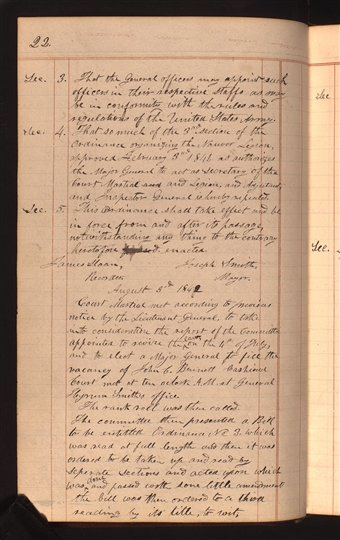 22.
Sec. 3. That the General officers may appoint such
officers in their respective Staffs as may
be in conformity with the rules and
regulations of the United States Army.
Sec. 4. That so much of the 3rd section of the
Ordinance organizing the Nauvoo Legion,
approved February 3rd 1841 as authorizes
the Major General to act as Secretary of the
Court Martial and Legion, and Adjutant
and Inspector General is hereby repealed.
Sec. 5. This Ordinance shall take effect and be
in force from and after its passage,
notwithstanding any thing to the contrary
heretofore enacted.
James Sloan, Joseph Smith,
Recorder. Mayor.
August 5th 1842
Court Martial met according to previous
notice by the Lieutenant General, to take
into consideration the report of the Committee
appointed to revise the laws on the 4th of July,
and to elect a Major General to fill the
vacancy of John C. Bennett Cashiered
Court met at ten oclock A.M. at General
Hyrum Smith's office
The rank roll was then called.
The committee then presented a Bill
to be entitled Ordinance No 2. which
was read at full length and then it was
ordered to be taken up and read by
seperate sections and acted upon which
was done and passed with some little amendment
the bill was then ordered to a third
reading by its title, to wit,
Sec
Sec.